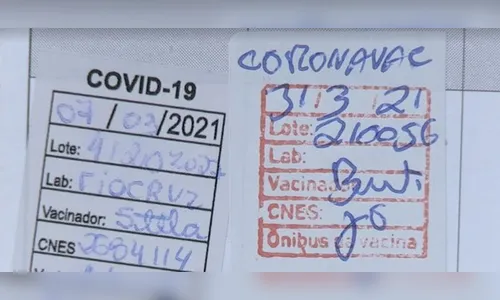 COVID-19
07/03/2021
Lote:
Lab: FIOCRUZ
Vacinador:
CNES 2684114
CORONAVAC
31 3 21
Lote: 210056
Lab:
Vacinador
CNES:
Ônibus da vacina